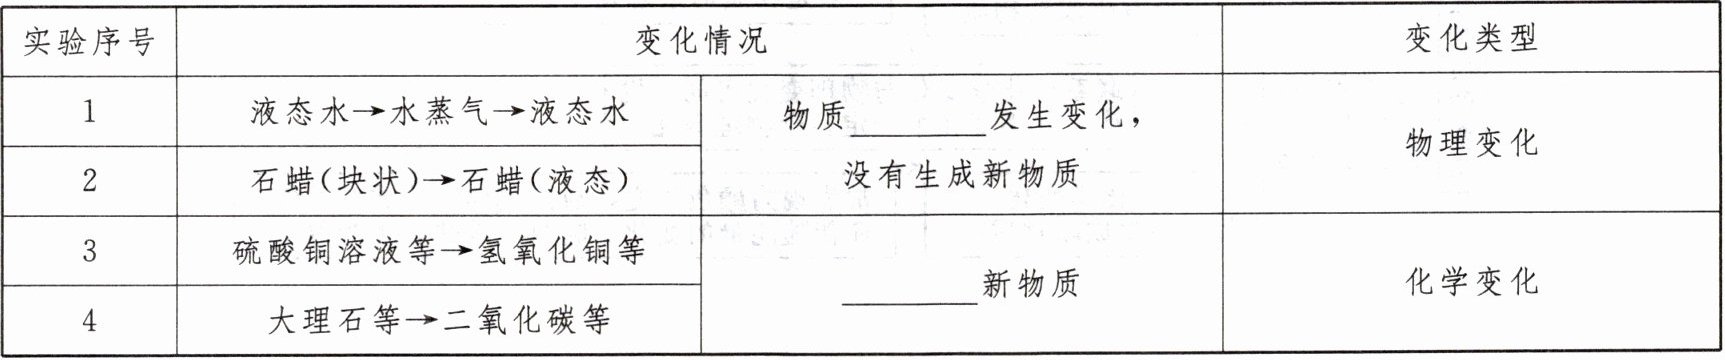 实验序号 变化情况 变化类型
1 液态水→水蒸气→液态水 物质________发生变化，
没有生成新物质 物理变化
2 石蜡(块状)→石蜡(液态)
3 硫酸铜溶液等→氢氧化铜等 ________新物质 化学变化
4 大理石等→二氧化碳等